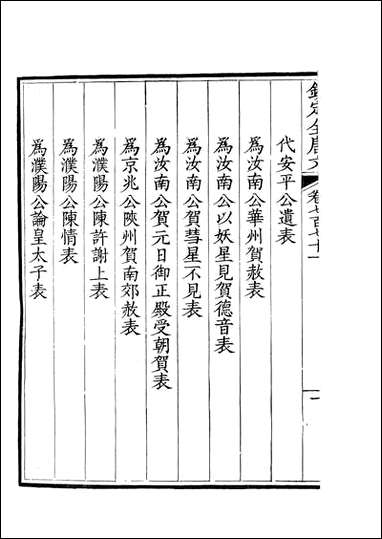 欽定全唐文 卷七百七十一 一
代安平公遺表
爲汝南公華州賀赦表
爲汝南公以妖星見賀德音表
爲汝南公賀彗星不見表
爲汝南公賀元日御正殿受朝賀表
爲京兆公陝州賀南郊赦表
爲濮陽公陳許謝上表
爲濮陽公陳情表
爲濮陽公論皇太子表